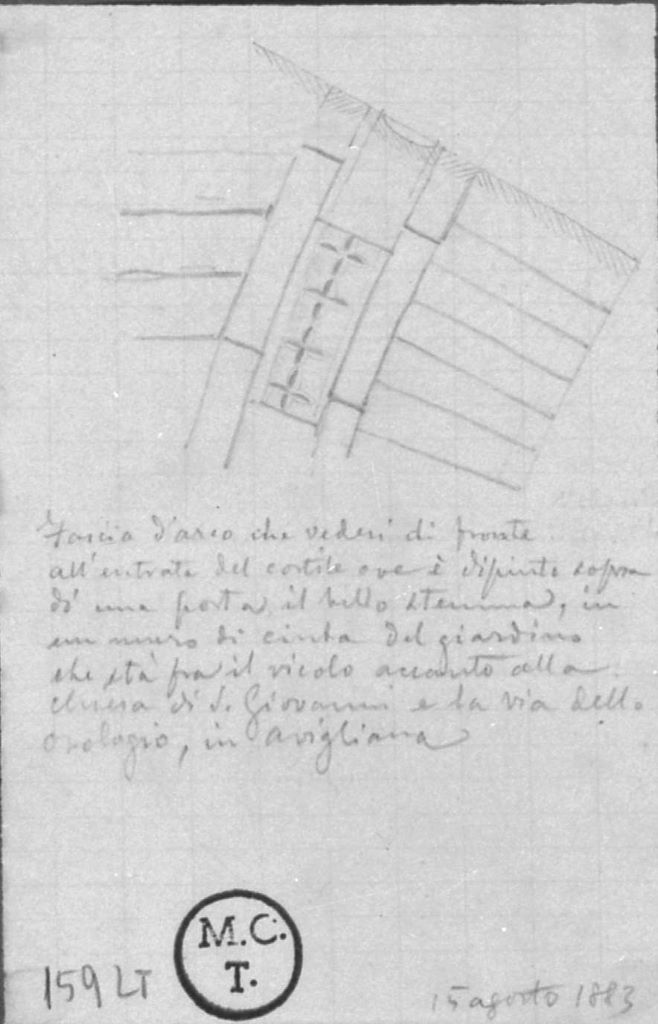 Fascia d'arco che vedesi di fronte
all'entrata del cortile ove è dipinto sopra
di una porta, il bello stemma, in
un muro di cinta del giardino
che stà fra il vicolo accanto alla
chiesa di S. Giovanni e la via dello
orologio, in Avigliana
M.C.
T.
159 LT
15 agosto 1883